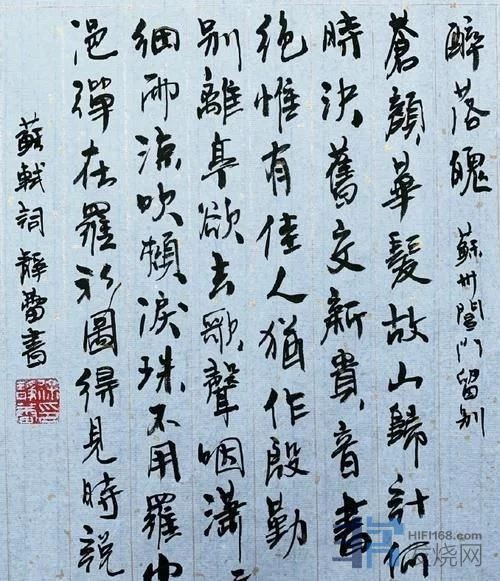 醉落魄 蘇州閶門留別
蒼顏華髮故山歸計何
時決舊交新貴音書
絕惟有佳人猶作殷勤
別離亭欲去歌聲咽瀟
細雨涼吹頰淚珠不用羅巾
浥彈在羅衫圖得見時說
蘇軾詞靜蕾書
HIFI168.com
烧网